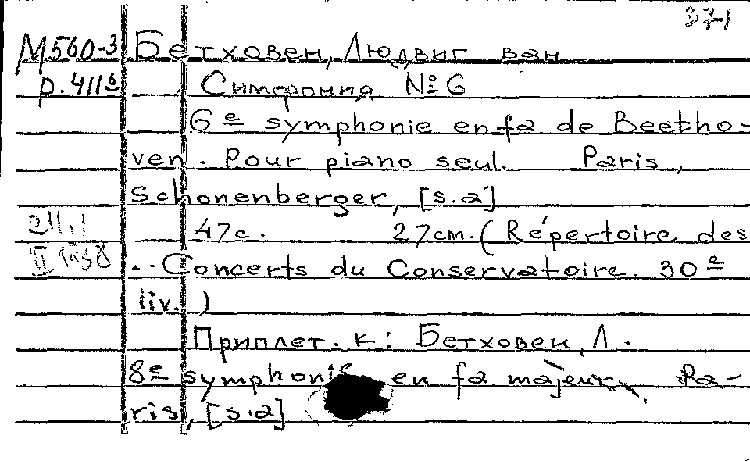 37-1
М560-3 Бетховен, Людвиг ван
р.411б Симфония №6
6e symphonie en fa de Beetho-
ven. Pour piano seul. Paris,
Schonenberger, [s.a]
47с. 27cm. (Répertoire des
.. Concerts du Conservatoire. 30e
liv. )
Приплет. к: Бетховен, Л.
8e symphonie en fa majeur. Pa-
ris, [s.a]